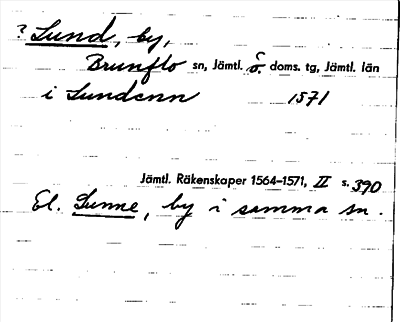 ? Lund, by,
Brunflo sn, Jämtl. ö. doms. tg, Jämtl. län
i Lundenn 1571
Jämtl. Räkenskaper 1564–1571, II s. 390
El. Lunne, by i samma sn.